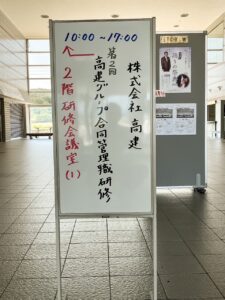 10:00 ~17:00
株式会社 高建
第2回
高建グループ合同管理職研修
←2階研修会議室(1)